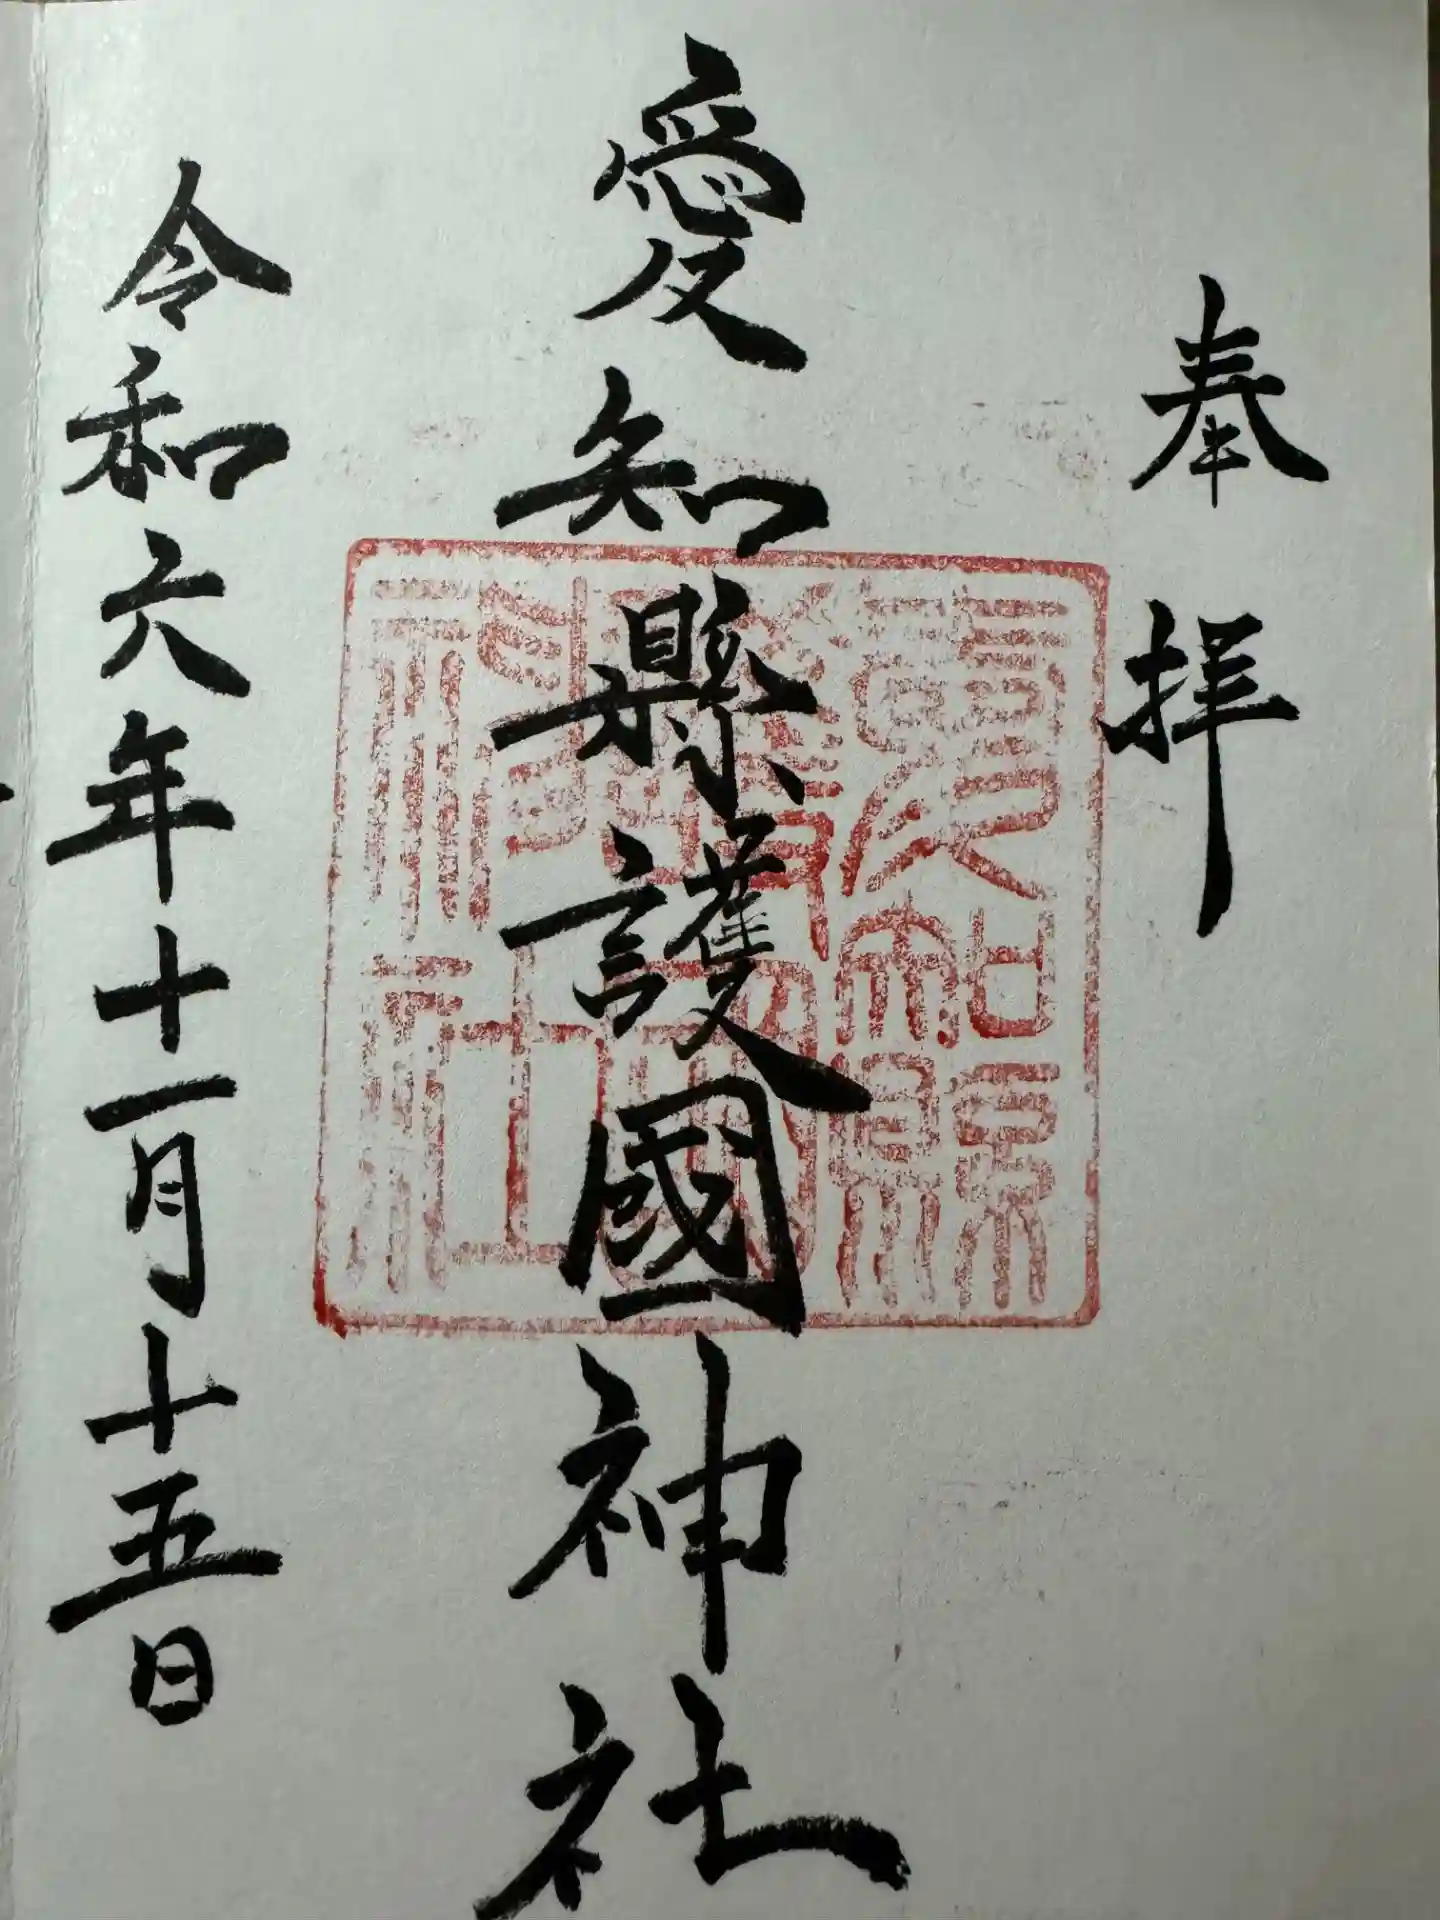 奉拝
愛知縣護國神社
令和六年十一月十五日
愛知縣
護國
神社